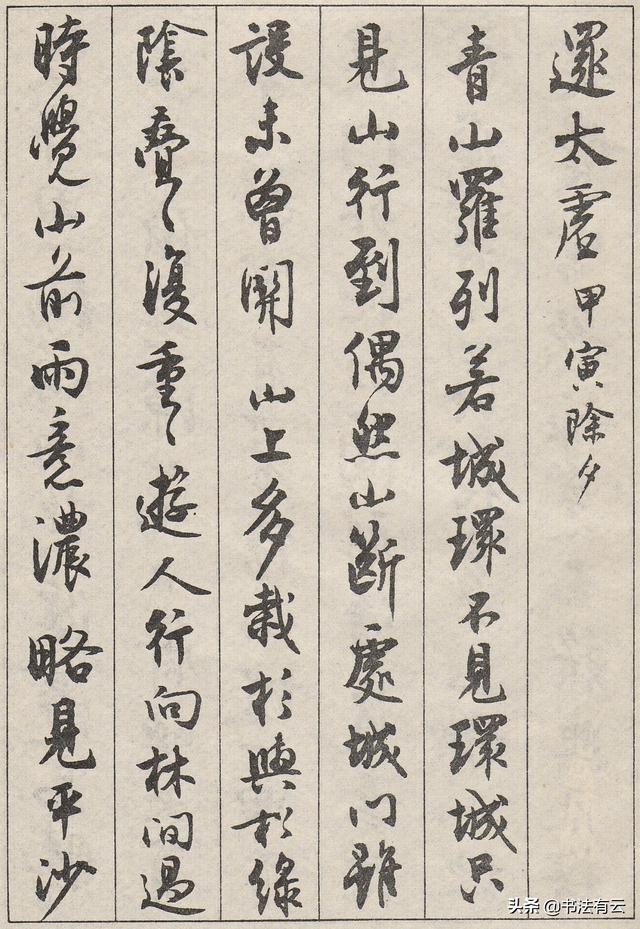 還太虛 甲寅除夕
青山羅列若城環不見環城只
見山行到偶然山斷處城門雖
設未曾開 山上多栽杉與松綠
陰疊〻復重〻遊人行向林間過
時覺山前雨意濃 略見平沙
头条 @书法有云